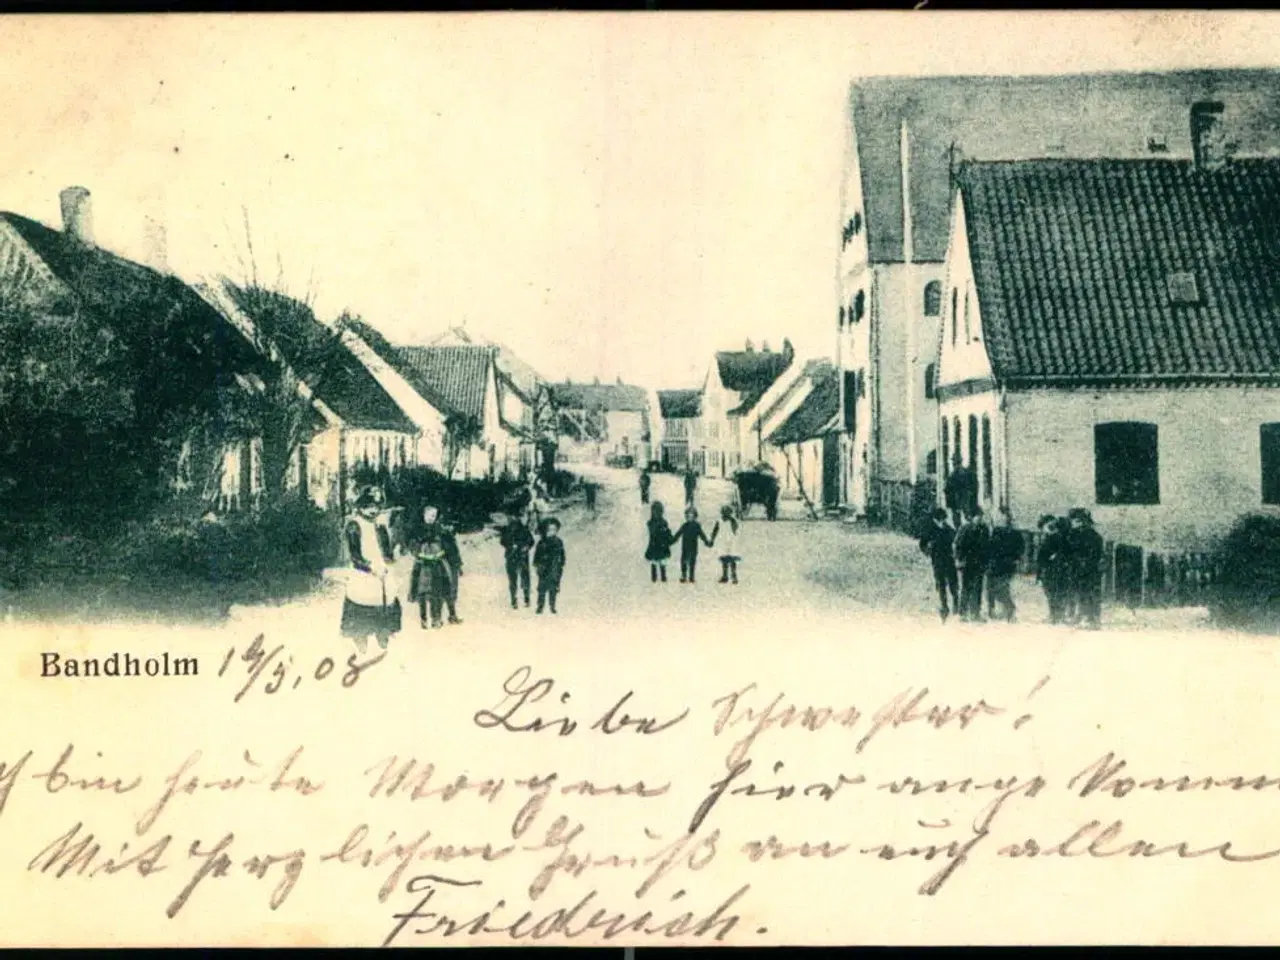 Bandholm 14/5,08
Liebe Schwester!
ch bin heute Morgen hier angekomm
Mit herzlichen Gruß an euch allen
Friedrich.